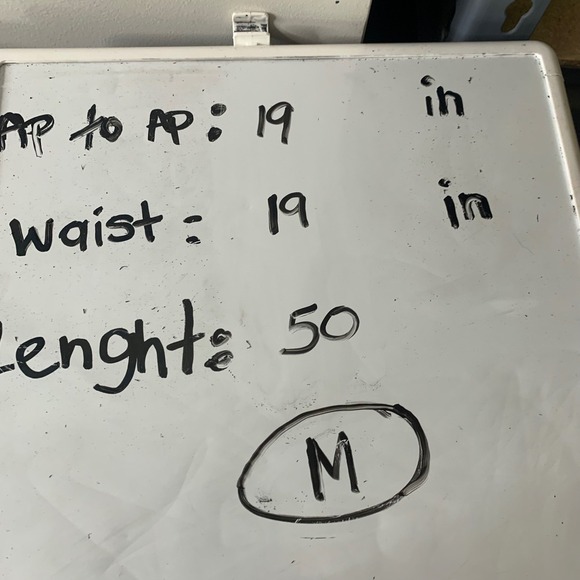 AP to AP: 19 in
Waist: 19 in
Lenght: 50
M